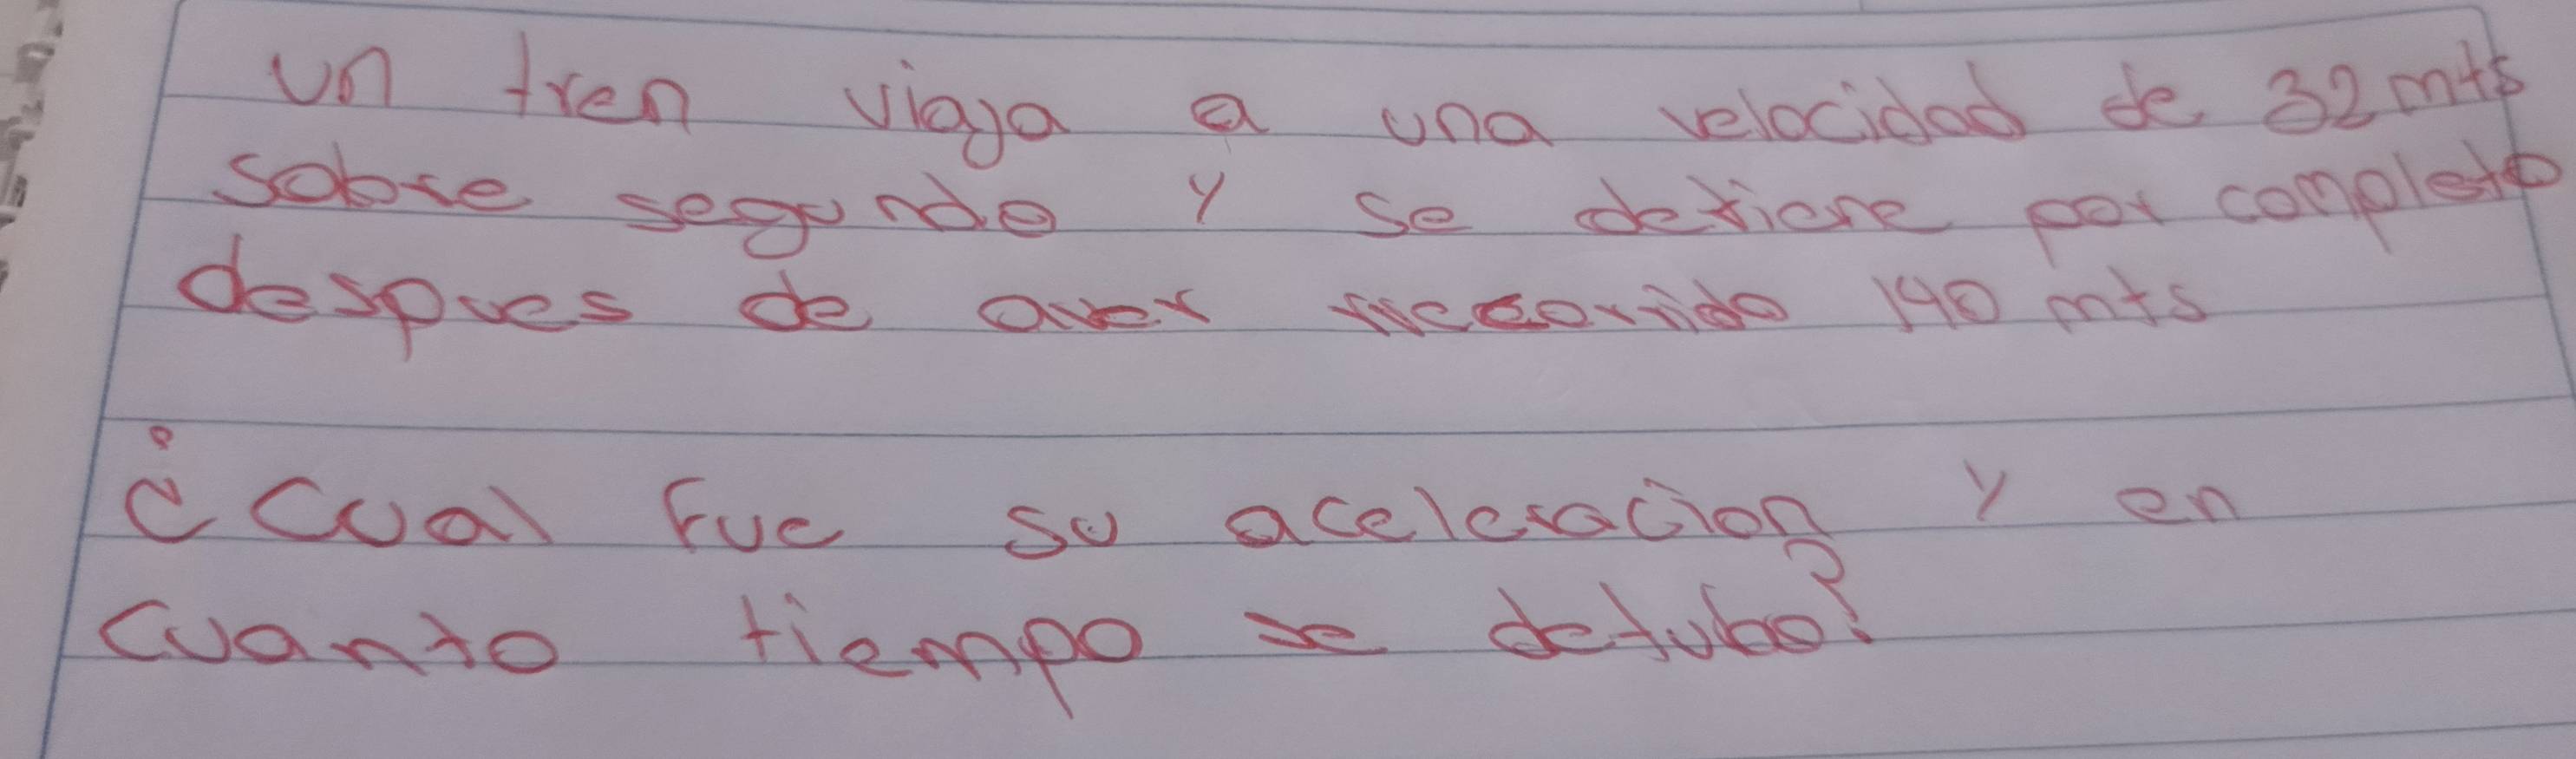 un tren viaja a una velocidad de 32 mts
sobre segundo y se detiene por completo
despues de aver recorrido 140 mts
¿Cual fue su aceleracion y en
cuanto tiempo se detubo?